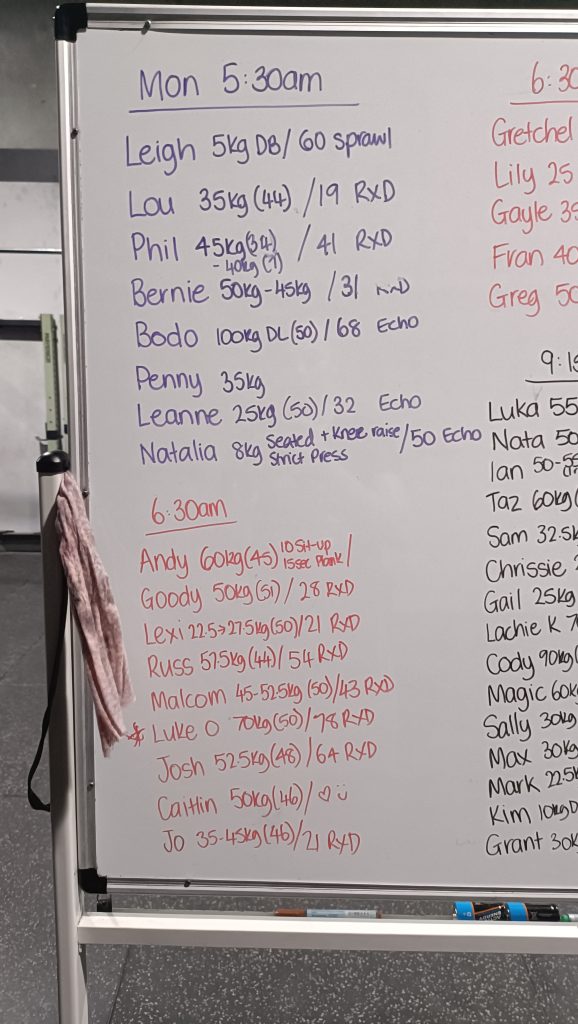 Mon 5:30am
Leigh 5kg DB/ 60 sprawl
Lou 35kg (44) /19 RXD
Phil 45kg(34) / 41 RXD
- 40kg (7)
Bernie 50kg-45kg /31 RXD
Bodo 100kg DL (50) / 68 Echo
Penny 35kg
Leanne 25kg (50)/ 32 Echo
Natalia 8kg Seated + knee raise /50 Echo
Strict Press
6:30am
Andy 60kg(45) 10 Sit-up /
15sec Plank
Goody 50kg(51)/ 28 RXD
Lexi 22.5→27.5kg(50)/21 RXD
Russ 57.5kg(44)/ 54 RXD
Malcom 45-52.5kg (50)/43 RXD
* Luke O 70kg(50)/78 RXD
Josh 52.5kg(48)/64 RXD
Caitlin 50kg(46)/♡☺
Jo 35-45kg(46)/21 RXD
6:30
Gretchel
Lily 25
Gayle 35
Fran 40
Greg 50
9:15
Luka 55
Nata 50
Ian 50-55
Taz 60kg(
Sam 32.5k
Chrissie
Gail 25kg
Lachie K 7
Cody 90kg(
Magic 60k
Sally 30kg
Max 30kg
Mark 22.5k
Kim 10kg D
Grant 30k